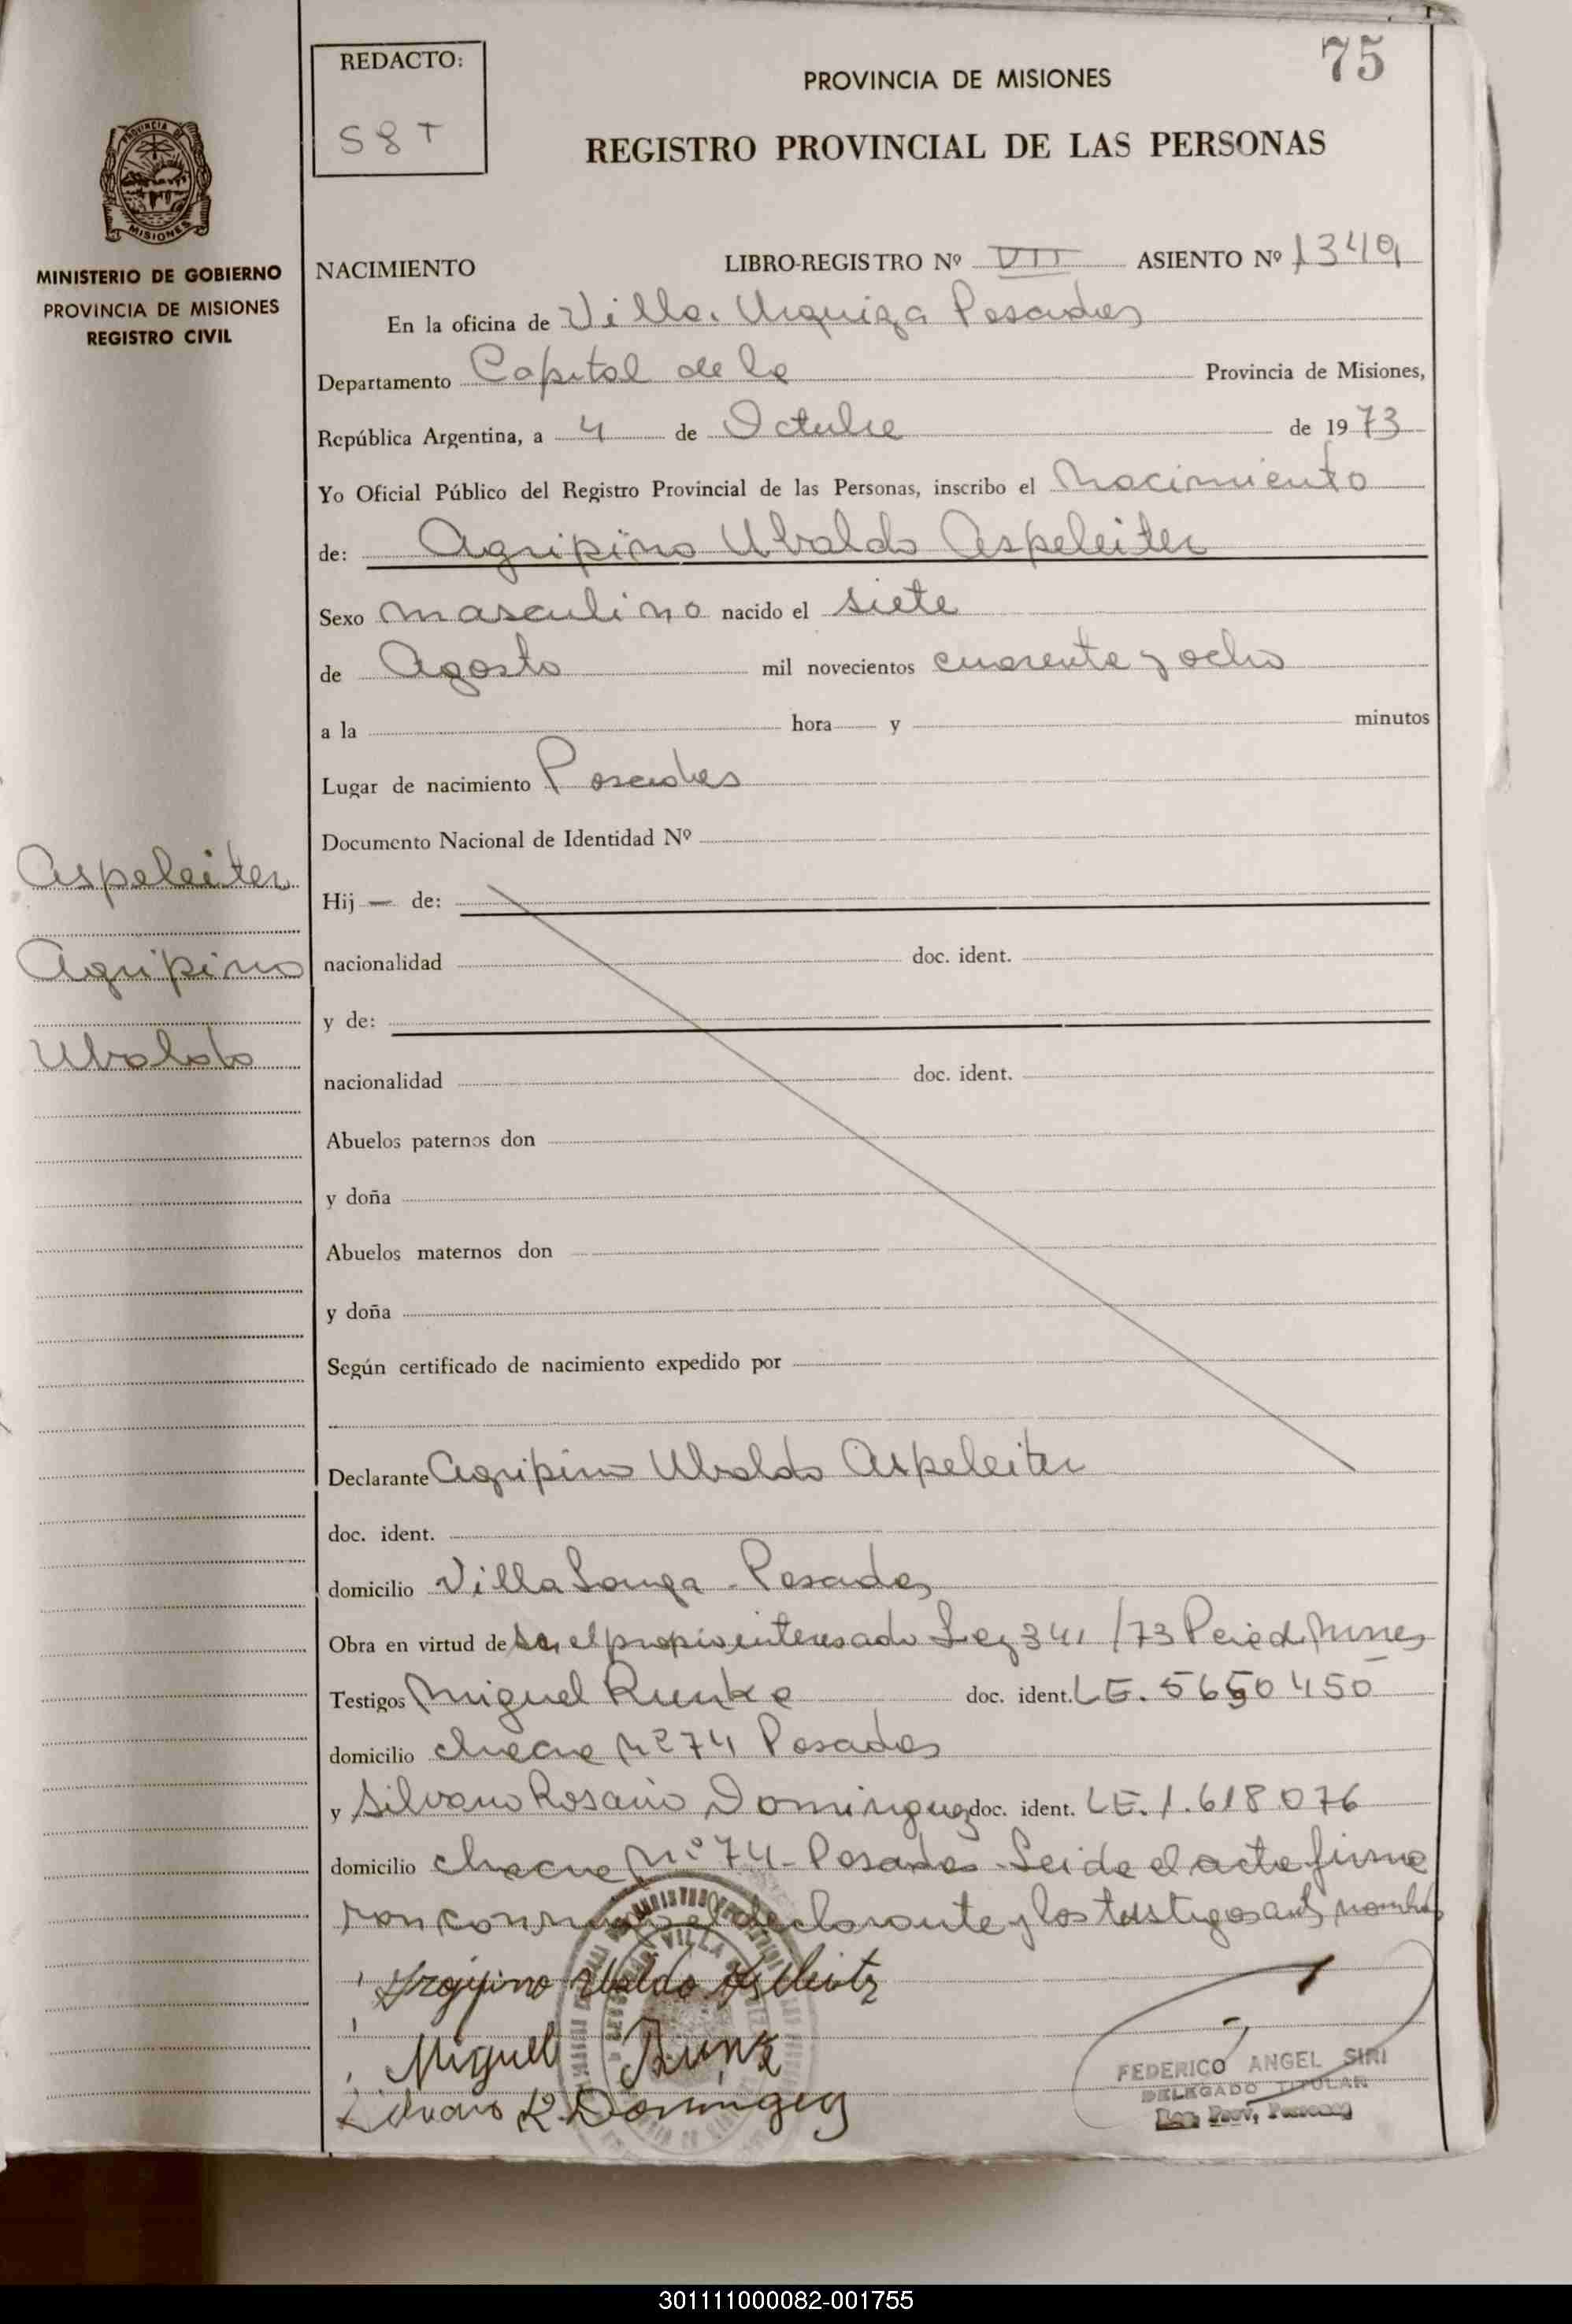 REDACTO:
S8T
75
PROVINCIA DE MISIONES
REGISTRO PROVINCIAL DE LAS PERSONAS
PROVINCIA DE
MISIONES
MINISTERIO DE GOBIERNO
PROVINCIA DE MISIONES
REGISTRO CIVIL
NACIMIENTO LIBRO-REGISTRO Nº VII ASIENTO Nº 1349
En la oficina de Villa Urquiza Posadas
Departamento Capital de la Provincia de Misiones,
República Argentina, a 4 de Octubre de 1973
Yo Oficial Público del Registro Provincial de las Personas, inscribo el Nacimiento
de: Agripino Ubaldo Aspeleiter
Sexo masculino nacido el siete
de Agosto mil novecientos cuarenta y ocho
a la hora y minutos
Lugar de nacimiento Posadas
Documento Nacional de Identidad Nº
Aspeleiter
Agripino
Ubaldo
Hij — de:
nacionalidad doc. ident.
y de:
nacionalidad doc. ident.
Abuelos paternos don
y doña
Abuelos maternos don
y doña
Según certificado de nacimiento expedido por
Declarante Agripino Ubaldo Aspeleiter
doc. ident.
domicilio Villa Longa - Posadas
Obra en virtud de ser el propio interesado Ley 341/73
Testigos Miguel Runke doc. ident. LE. 5650450
domicilio chacra Nº 74 Posadas
y Silvano Rosario Dominguez doc. ident. LE. 1.618076
domicilio chacra Nº 74 - Posadas - Leida el acta firma
ron conmigo el declarante y los testigos
Agripino Ubaldo
Miguel
Silvano R Dominguez
FEDERICO ANGEL SIRI
DELEGADO TITULAR
Reg. Prov. Personas
301111000082-001755